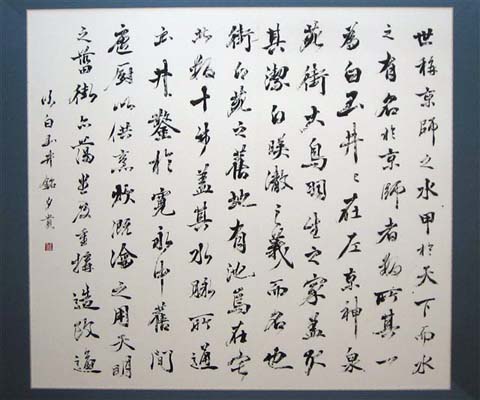 世稱京師之水甲於天下而水
之有名於京師者數所其一
為白玉井〻在左京神泉
苑街大鳥羽之家蓋取
其潔白暎澈之義而名也
街即苑之舊地有池焉在宅
北數十步蓋其水脈所通
玉井鑿於寛永中舊間
庖厨以供烹炊溉瀹之用天明
之舊街亦蕩盡後重構造改通
白玉井銘